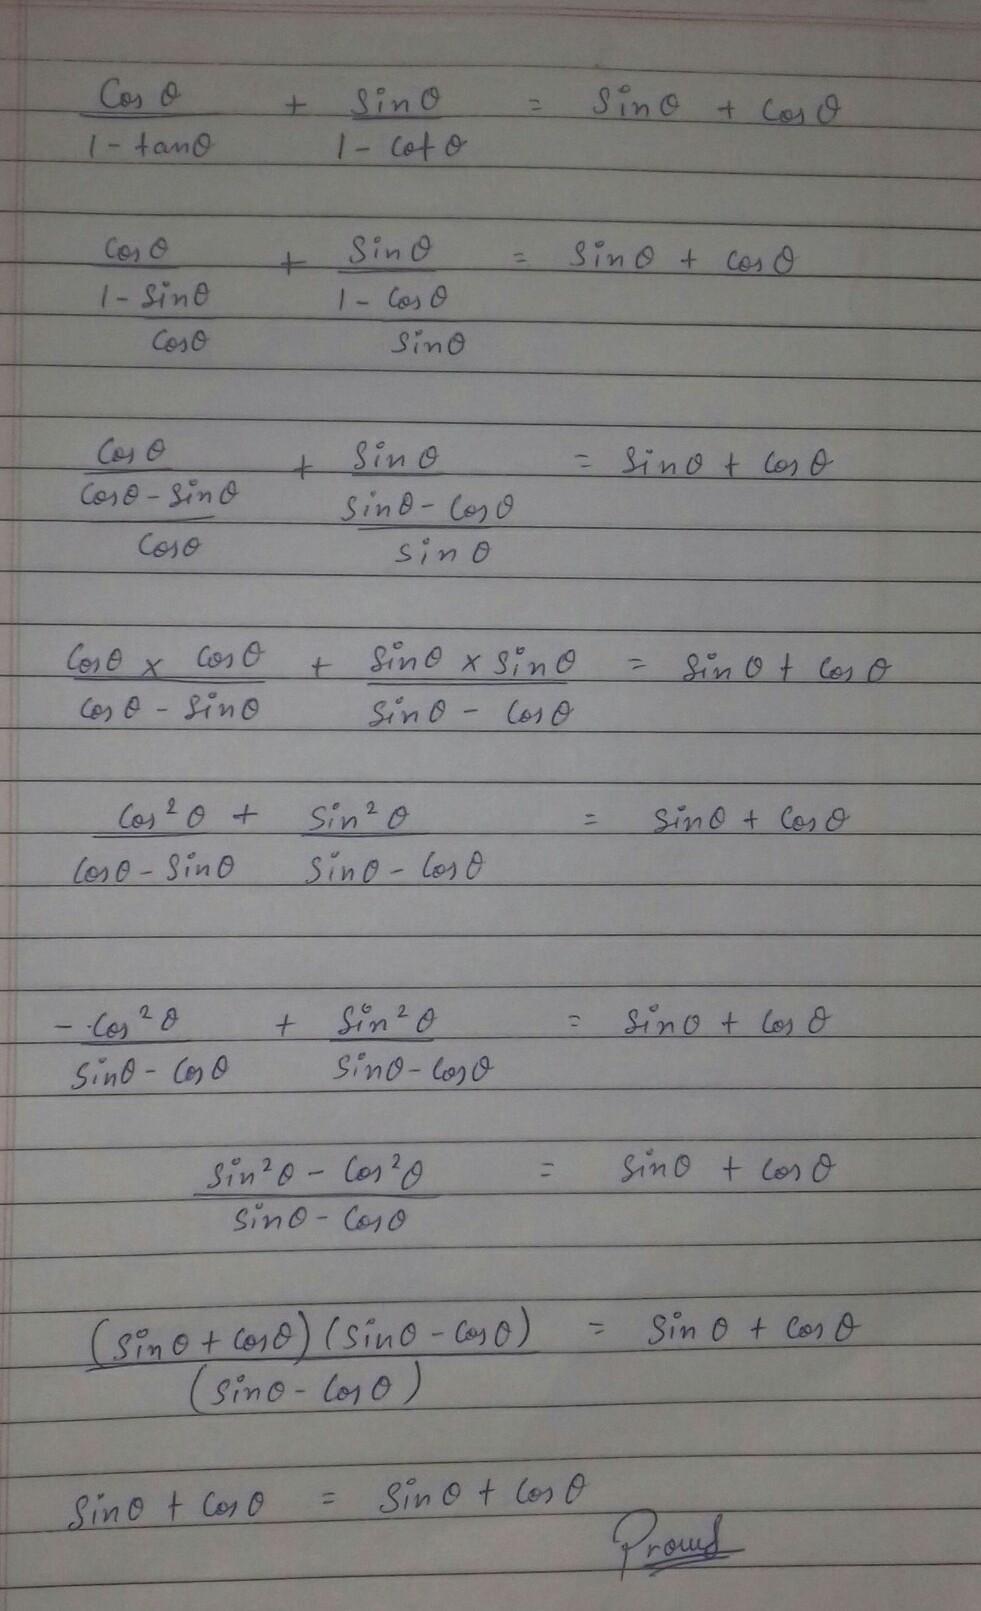 Cos θ + Sin θ = Sin θ + Cos θ
1 - tan θ 1 - Cot θ
Cos θ + Sin θ = Sin θ + Cos θ
1 - Sin θ 1 - Cos θ
Cos θ Sin θ
Cos θ + Sin θ = Sin θ + Cos θ
Cos θ - Sin θ Sin θ - Cos θ
Cos θ Sin θ
Cos θ × Cos θ + Sin θ × Sin θ = Sin θ + Cos θ
Cos θ - Sin θ Sin θ - Cos θ
Cos² θ + Sin² θ = Sin θ + Cos θ
Cos θ - Sin θ Sin θ - Cos θ
- Cos² θ + Sin² θ = Sin θ + Cos θ
Sin θ - Cos θ Sin θ - Cos θ
Sin² θ - Cos² θ = Sin θ + Cos θ
Sin θ - Cos θ
(Sin θ + Cos θ) (Sin θ - Cos θ) = Sin θ + Cos θ
(Sin θ - Cos θ)
Sin θ + Cos θ = Sin θ + Cos θ
Proved